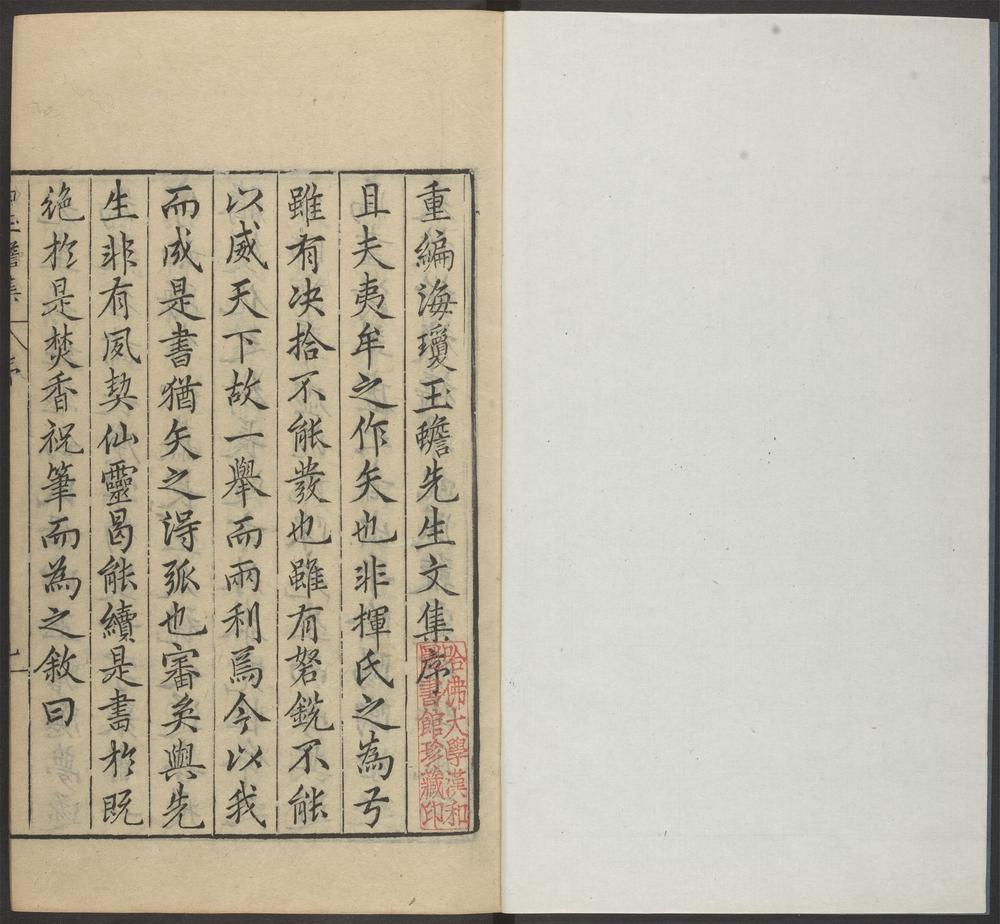 重編海瓊玉蟾先生文集序
且夫夷牟之作矢也非揮氏之為弓
雖有决拾不能發也雖有弩銳不能
以威天下故一舉而兩利焉今以我
而成是書猶矢之得弧也審矣與先
生非有夙契仙靈曷能續是書於既
絶於是焚香祝筆而為之敘曰
哈佛大學漢和
圖書館珍藏印